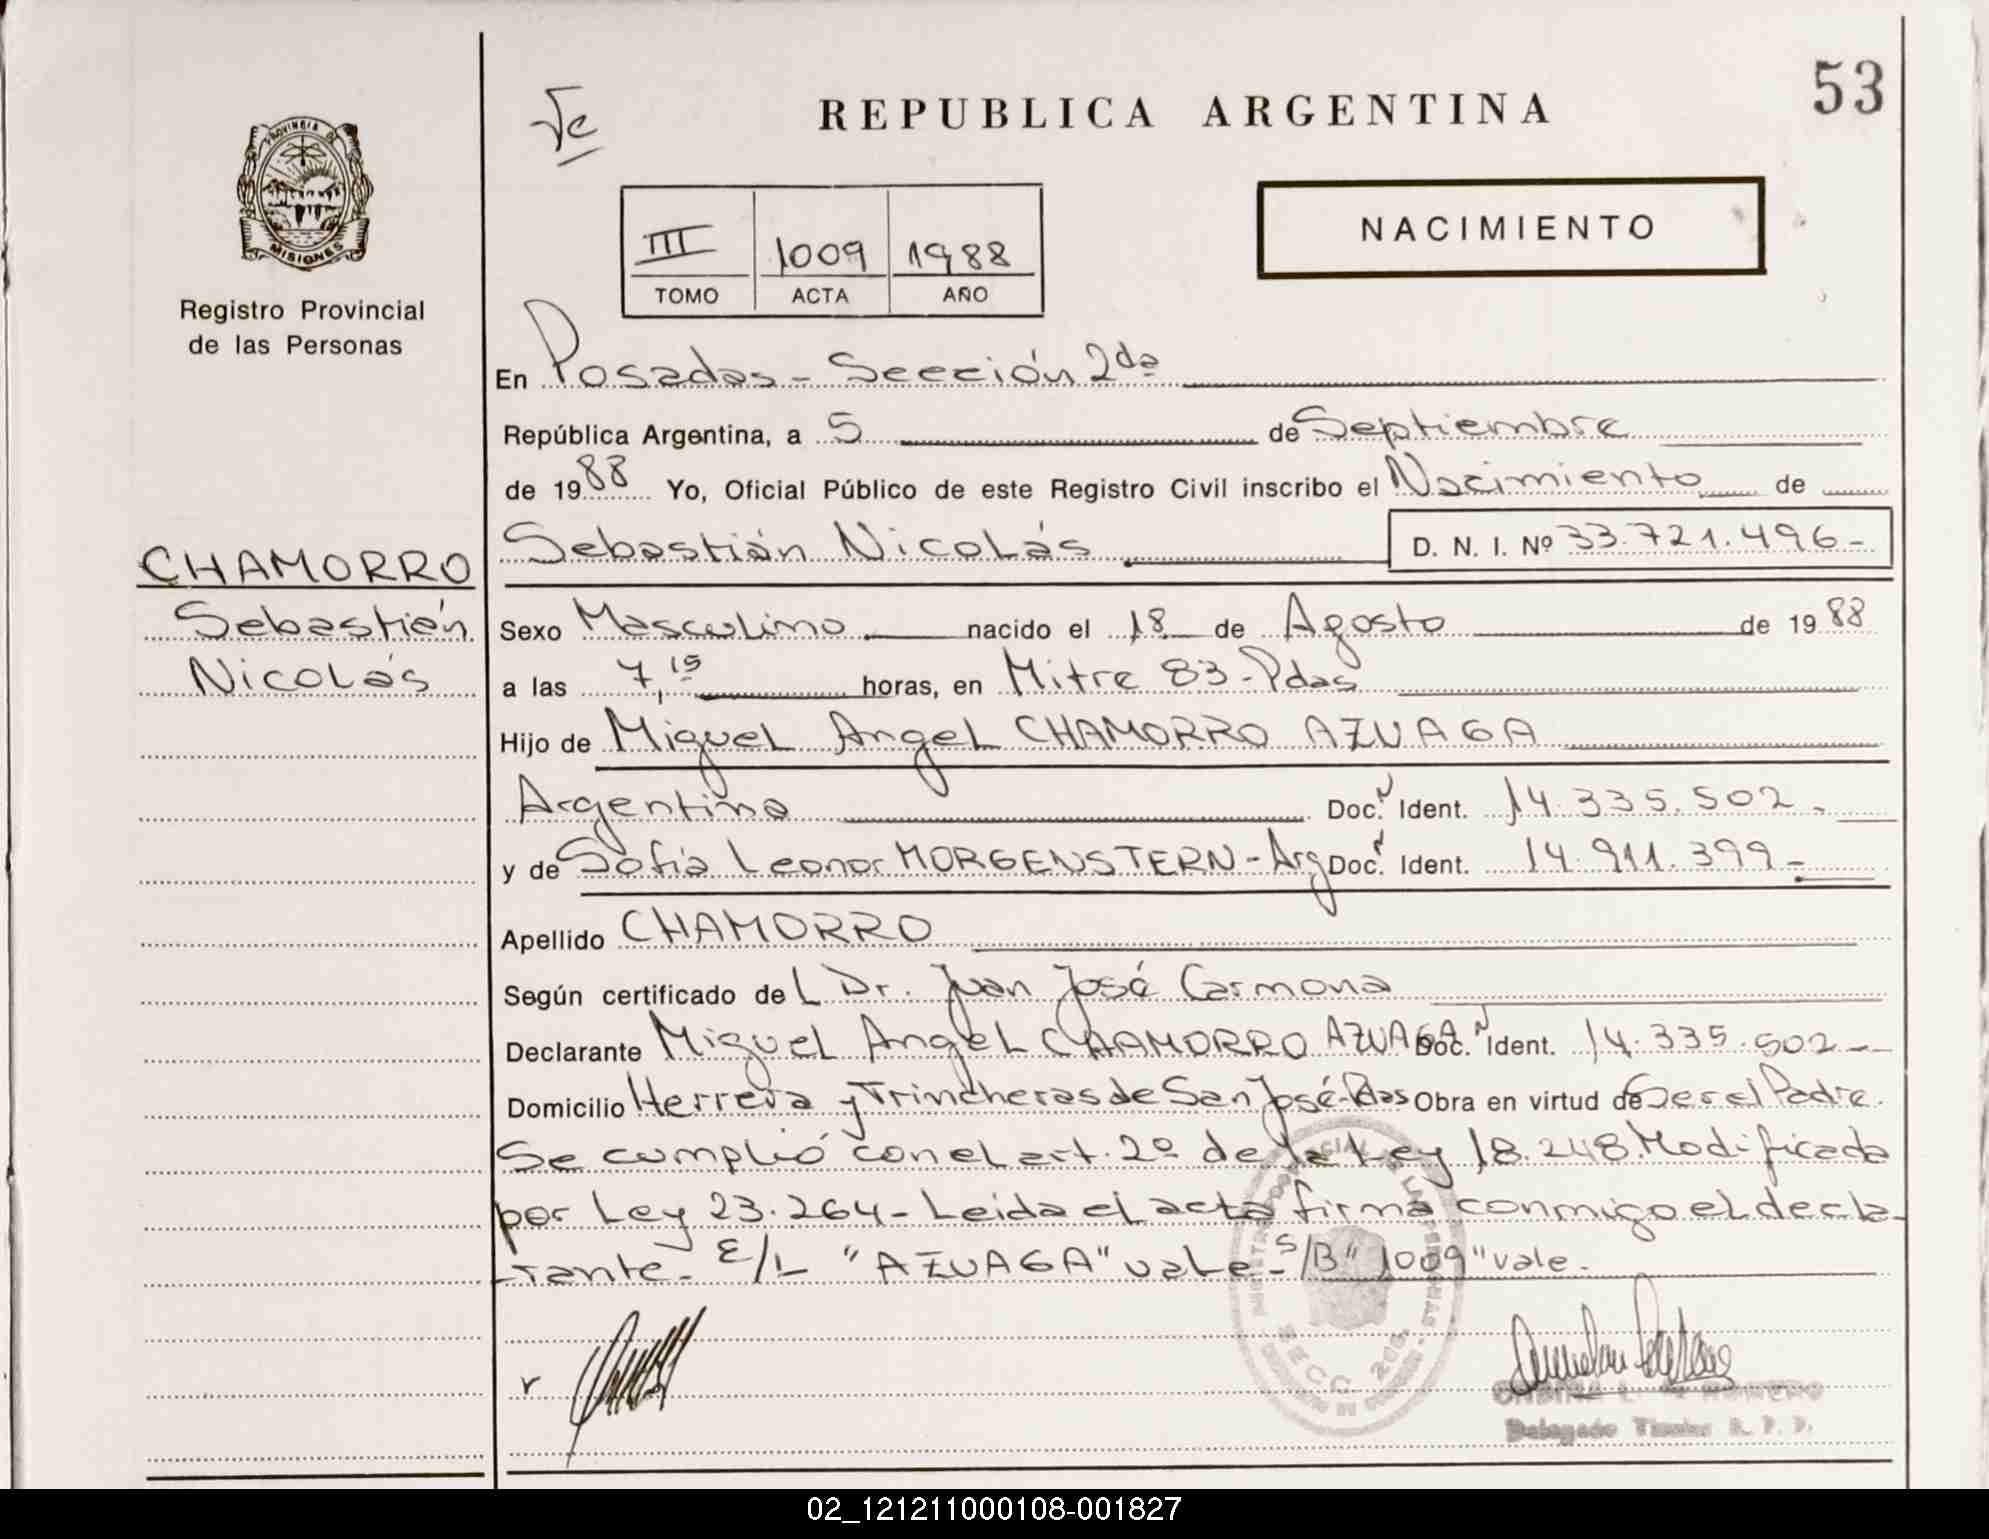 53
REPUBLICA ARGENTINA
PROVINCIA DE
MISIONES
Registro Provincial
de las Personas
III 1009 1988
TOMO ACTA AÑO
NACIMIENTO
En Posadas - Sección 2da
República Argentina, a 5 de Septiembre
de 1988 Yo, Oficial Público de este Registro Civil inscribo el Nacimiento de
Sebastián Nicolás D. N. I. Nº 33.721.496-
CHAMORRO
Sebastián
Nicolás
Sexo Masculino nacido el 18 de Agosto de 1988
a las 7,15 horas, en Mitre 83-Pdas
Hijo de Miguel Angel CHAMORRO AZUAGA
Argentina Doc. N Ident. 14.335.502-
y de Sofía Leonor MORGENSTERN-Arg Doc. N Ident. 14.911.399-
Apellido CHAMORRO
Según certificado del Dr. Juan José Carmona
Declarante Miguel Angel CHAMORRO AZUAGA Doc. N Ident. 14.335.502-
Domicilio Herrera y Trincheras de San José-Pdas Obra en virtud de Ser el Padre.
Se cumplió con el art. 2º de la Ley 18.248. Modificada
por Ley 23.264- Leida el acta firma conmigo el decla-
rante- E/L "AZUAGA" vale- S/B "1009" vale.
SECC. 2da.
ROMERO
Delegado Titular R. P. P.
02_121211000108-001827